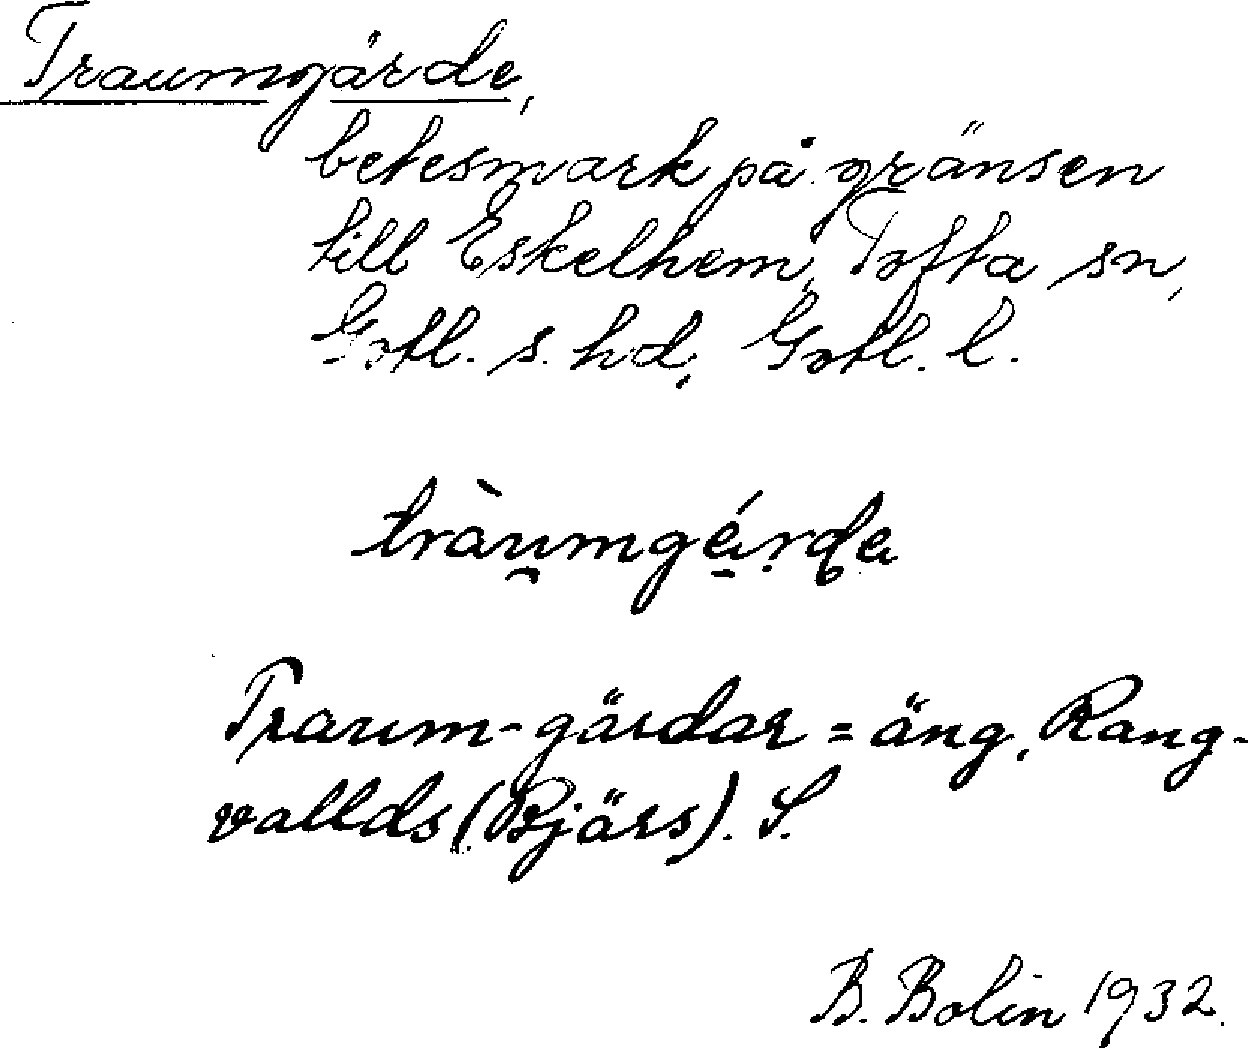 Traumgärde,
betesmark på gränsen
till Eskelhem, Tofta sn,
Gotl. s. hd, Gotl. l.
tràumgǻrda
Traum-gärdar = äng, Rang-
vallds (Bjärs). S.
B. Bolin 1932.